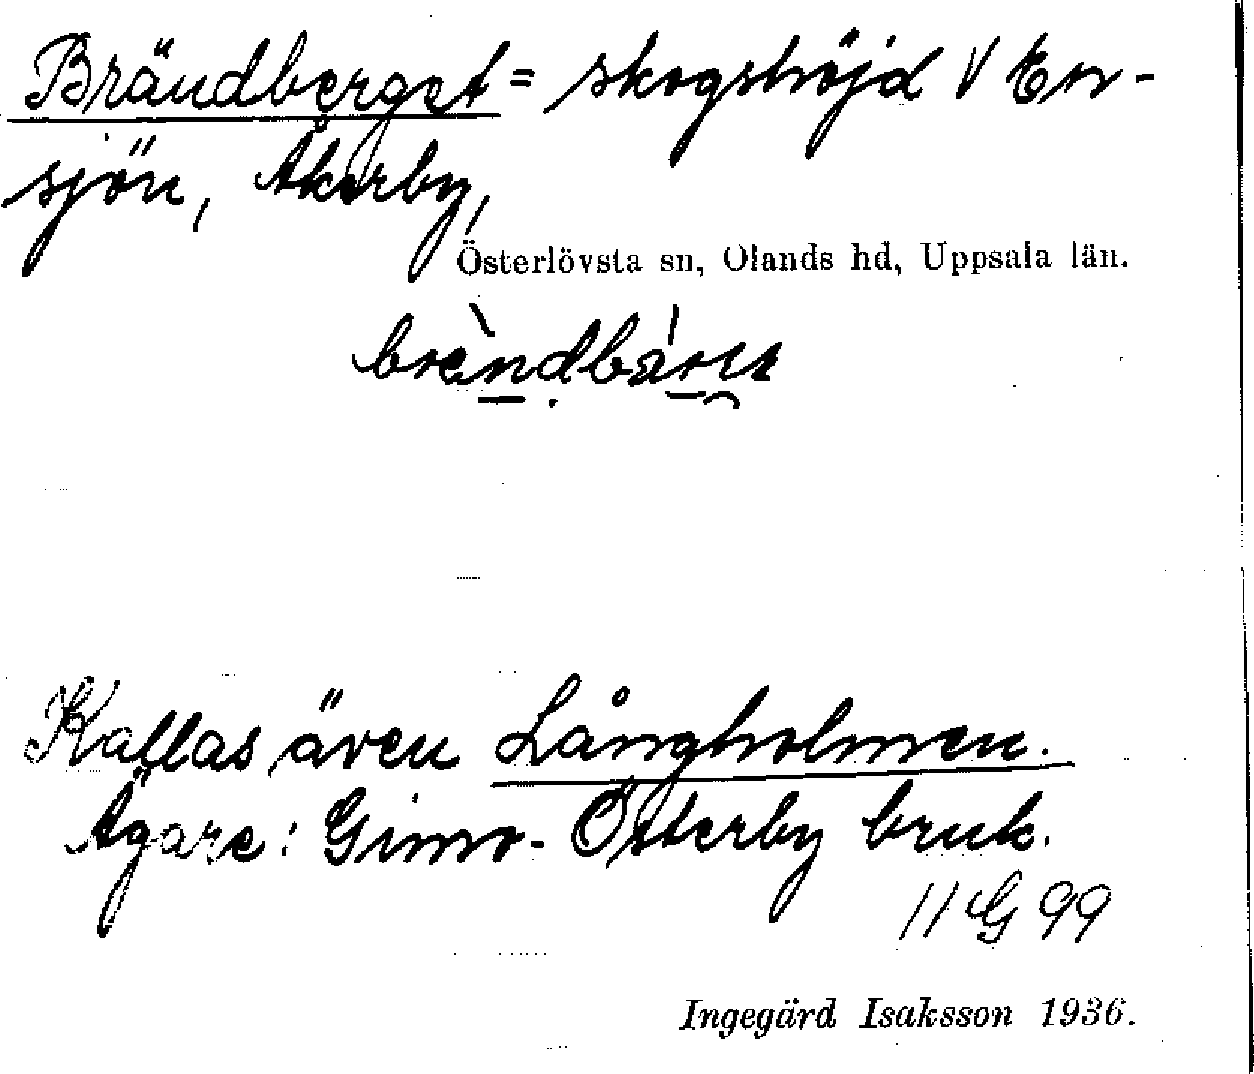 Brändberget = skogshöjd V En-
sjön, Åkerby,
Österlövsta sn, Olands hd, Uppsala län.
Kallas även Långholmen.
Ägare: Gimo-Österby bruk.
11 G 99
Ingegärd Isaksson 1936.